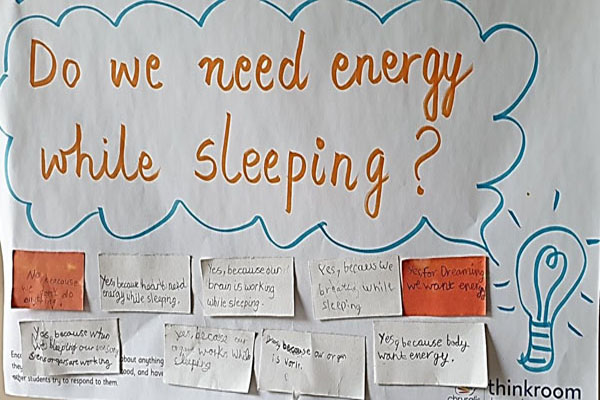 Do we need energy
while sleeping?
No, because
we don't do
Yes, because heart need
energy while sleeping.
Yes, because our
brain is working
while sleeping.
Yes, because we
breath while
sleeping
Yes, for Dreaming
we want energy
Yes, because when
we sleeping our
organ are working.
Yes, because our
works while
sleeping
because our organ
is work.
Yes, because body
want energy.
about anything
ood, and have
other students try to respond to them.
thinkroom